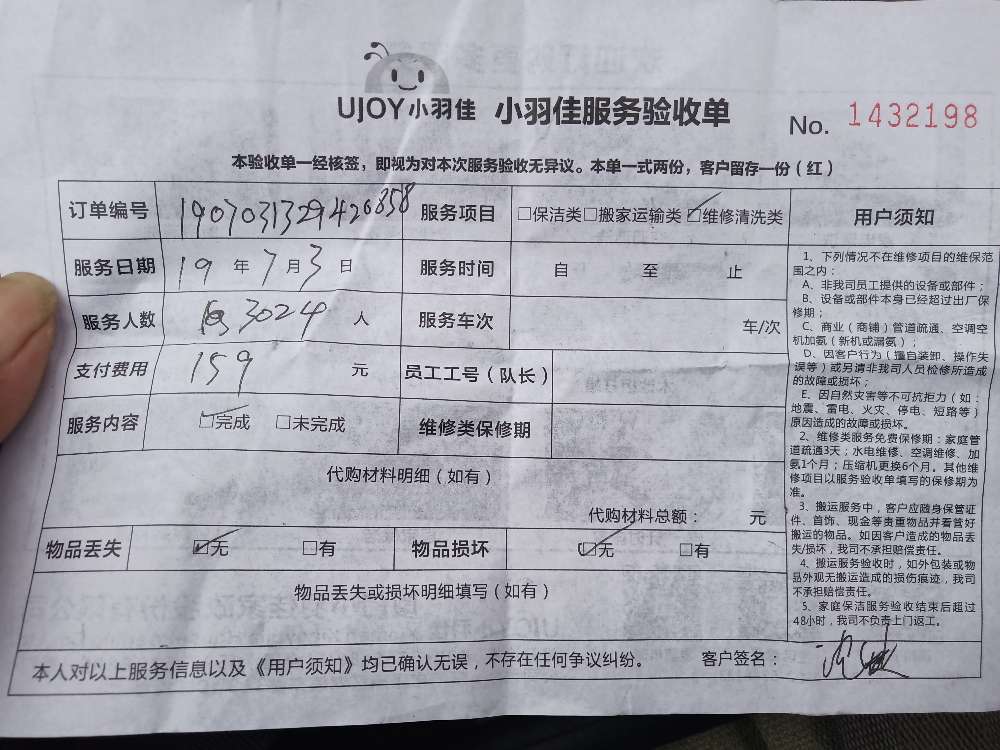 UJOY小羽佳 小羽佳服务验收单 No. 1432198
本验收单一经核签，即视为对本次服务验收无异议。本单一式两份，客户留存一份（红）
订单编号 1907031329426358 服务项目 □保洁类□搬家运输类☑维修清洗类
服务日期 19 年 7 月 3 日 服务时间 自 至 止
服务人数 3024 人 服务车次 车/次
支付费用 159 元 员工工号（队长）
服务内容 ☑完成 □未完成 维修类保修期
代购材料明细（如有）
代购材料总额： 元
物品丢失 ☑无 □有 物品损坏 ☑无 □有
物品丢失或损坏明细填写（如有）
本人对以上服务信息以及《用户须知》均已确认无误，不存在任何争议纠纷。 客户签名：
用户须知
1、下列情况不在维修项目的维保范
围之内：
A、非我司员工提供的设备或部件；
B、设备或部件本身已经超过出厂保
修期；
C、商业（商铺）管道疏通、空调空
机加氨（新机或漏氨）；
D、因客户行为（擅自装卸、操作失
误等）或另请非我司人员检修所造成
的故障或损坏；
E、因自然灾害等不可抗拒力（如：
地震、雷电、火灾、停电、短路等）
原因造成的故障或损坏。
2、维修类服务免费保修期：家庭管
道疏通3天；水电维修、空调维修、加
氨1个月；压缩机更换6个月。其他维
修项目以服务验收单填写的保修期为
准。
3、搬运服务中，客户应随身保管证
件、首饰、现金等贵重物品并看管好
搬运的物品。如因客户造成的物品丢
失/损坏，我司不承担赔偿责任。
4、搬运服务验收时，如外包装或物
品外观无搬运造成的损伤痕迹，我司
不承担赔偿责任。
5、家庭保洁服务验收结束后超过
48小时，我司不负责上门返工。